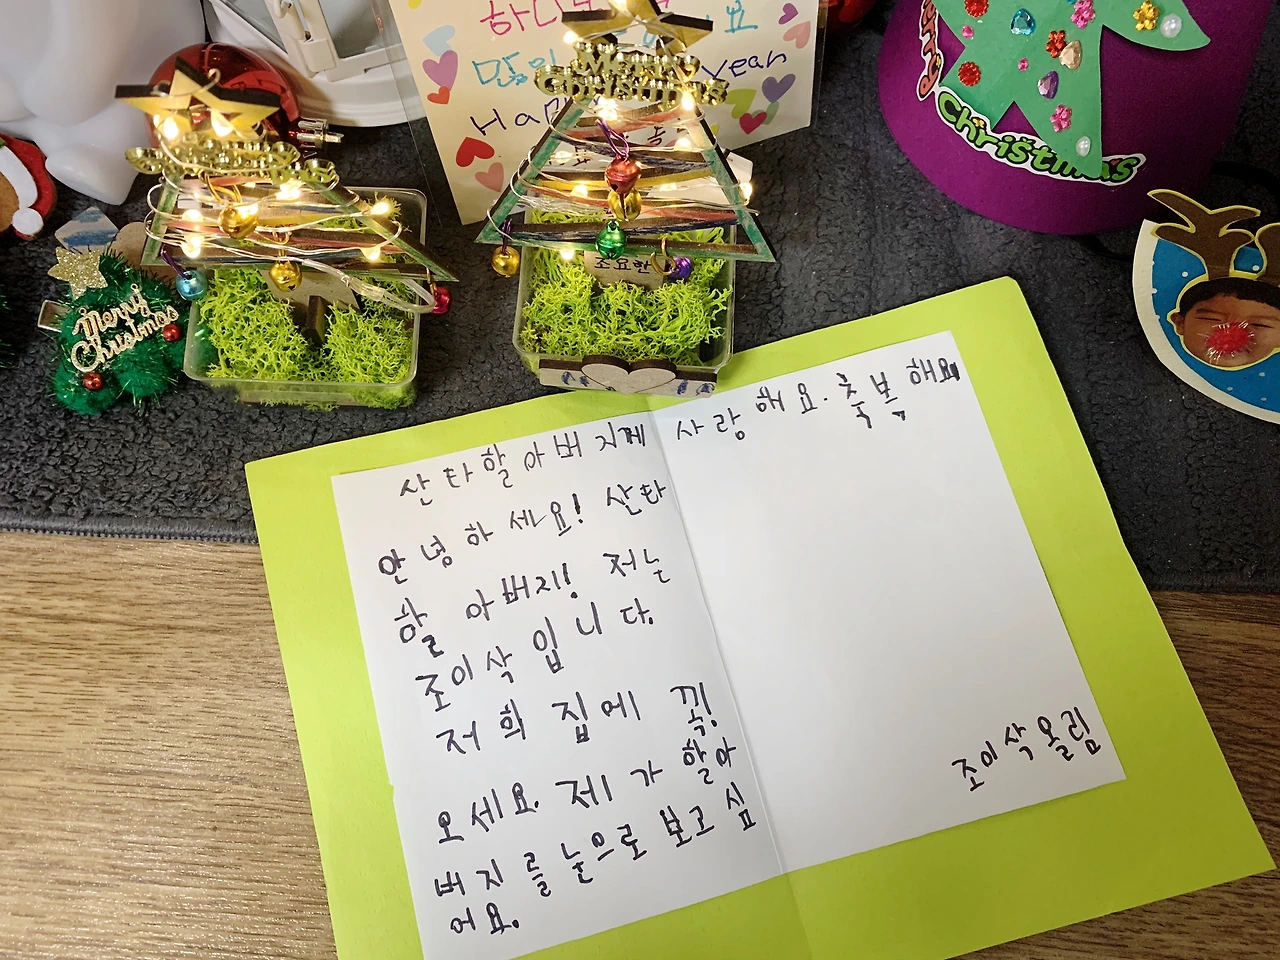 하
요
Happy
Year
Merry
Christmas
Merry
Christmas
Christmas
조요한
산타할아버지께
안녕하세요! 산타
할아버지! 저는
조이삭입니다.
저희 집에 꼭!
오세요. 제가 할아
버지를 눈으로 보고 십
어요.
사랑해요. 축복해요
조이삭 올림